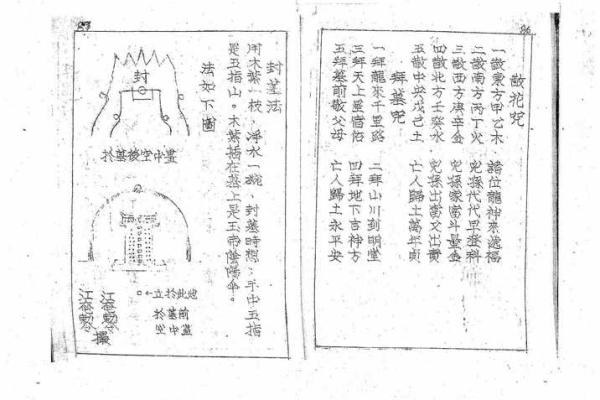 86
散花咒
一散東方甲乙木．諸位龍神來進福
二散南方丙丁火．兒孫代代早登科
三散西方庚辛金．兒孫家富斗量金
四散北方壬癸水．兒孫出富又出貴
五散中央戊己土　亡人歸土萬年貞
拜墓咒
一拜龍來千里路　二拜山川到明堂
三拜天上星宿佑　四拜地下吉神方
五拜墓前敬父母　亡人歸土永平安
87
封墓法
用木紫一枝、淨水一碗、封墓時想：手中五指
是五指山。木紫插在墓上是玉帝陰陽傘。
法如下圖
封
於墓後空中畫
立於此地
於墓前
空中畫